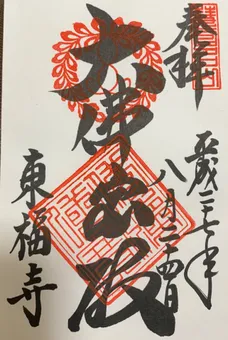 奉拝
平成二七年
八月二四日
大佛宝殿
東福寺